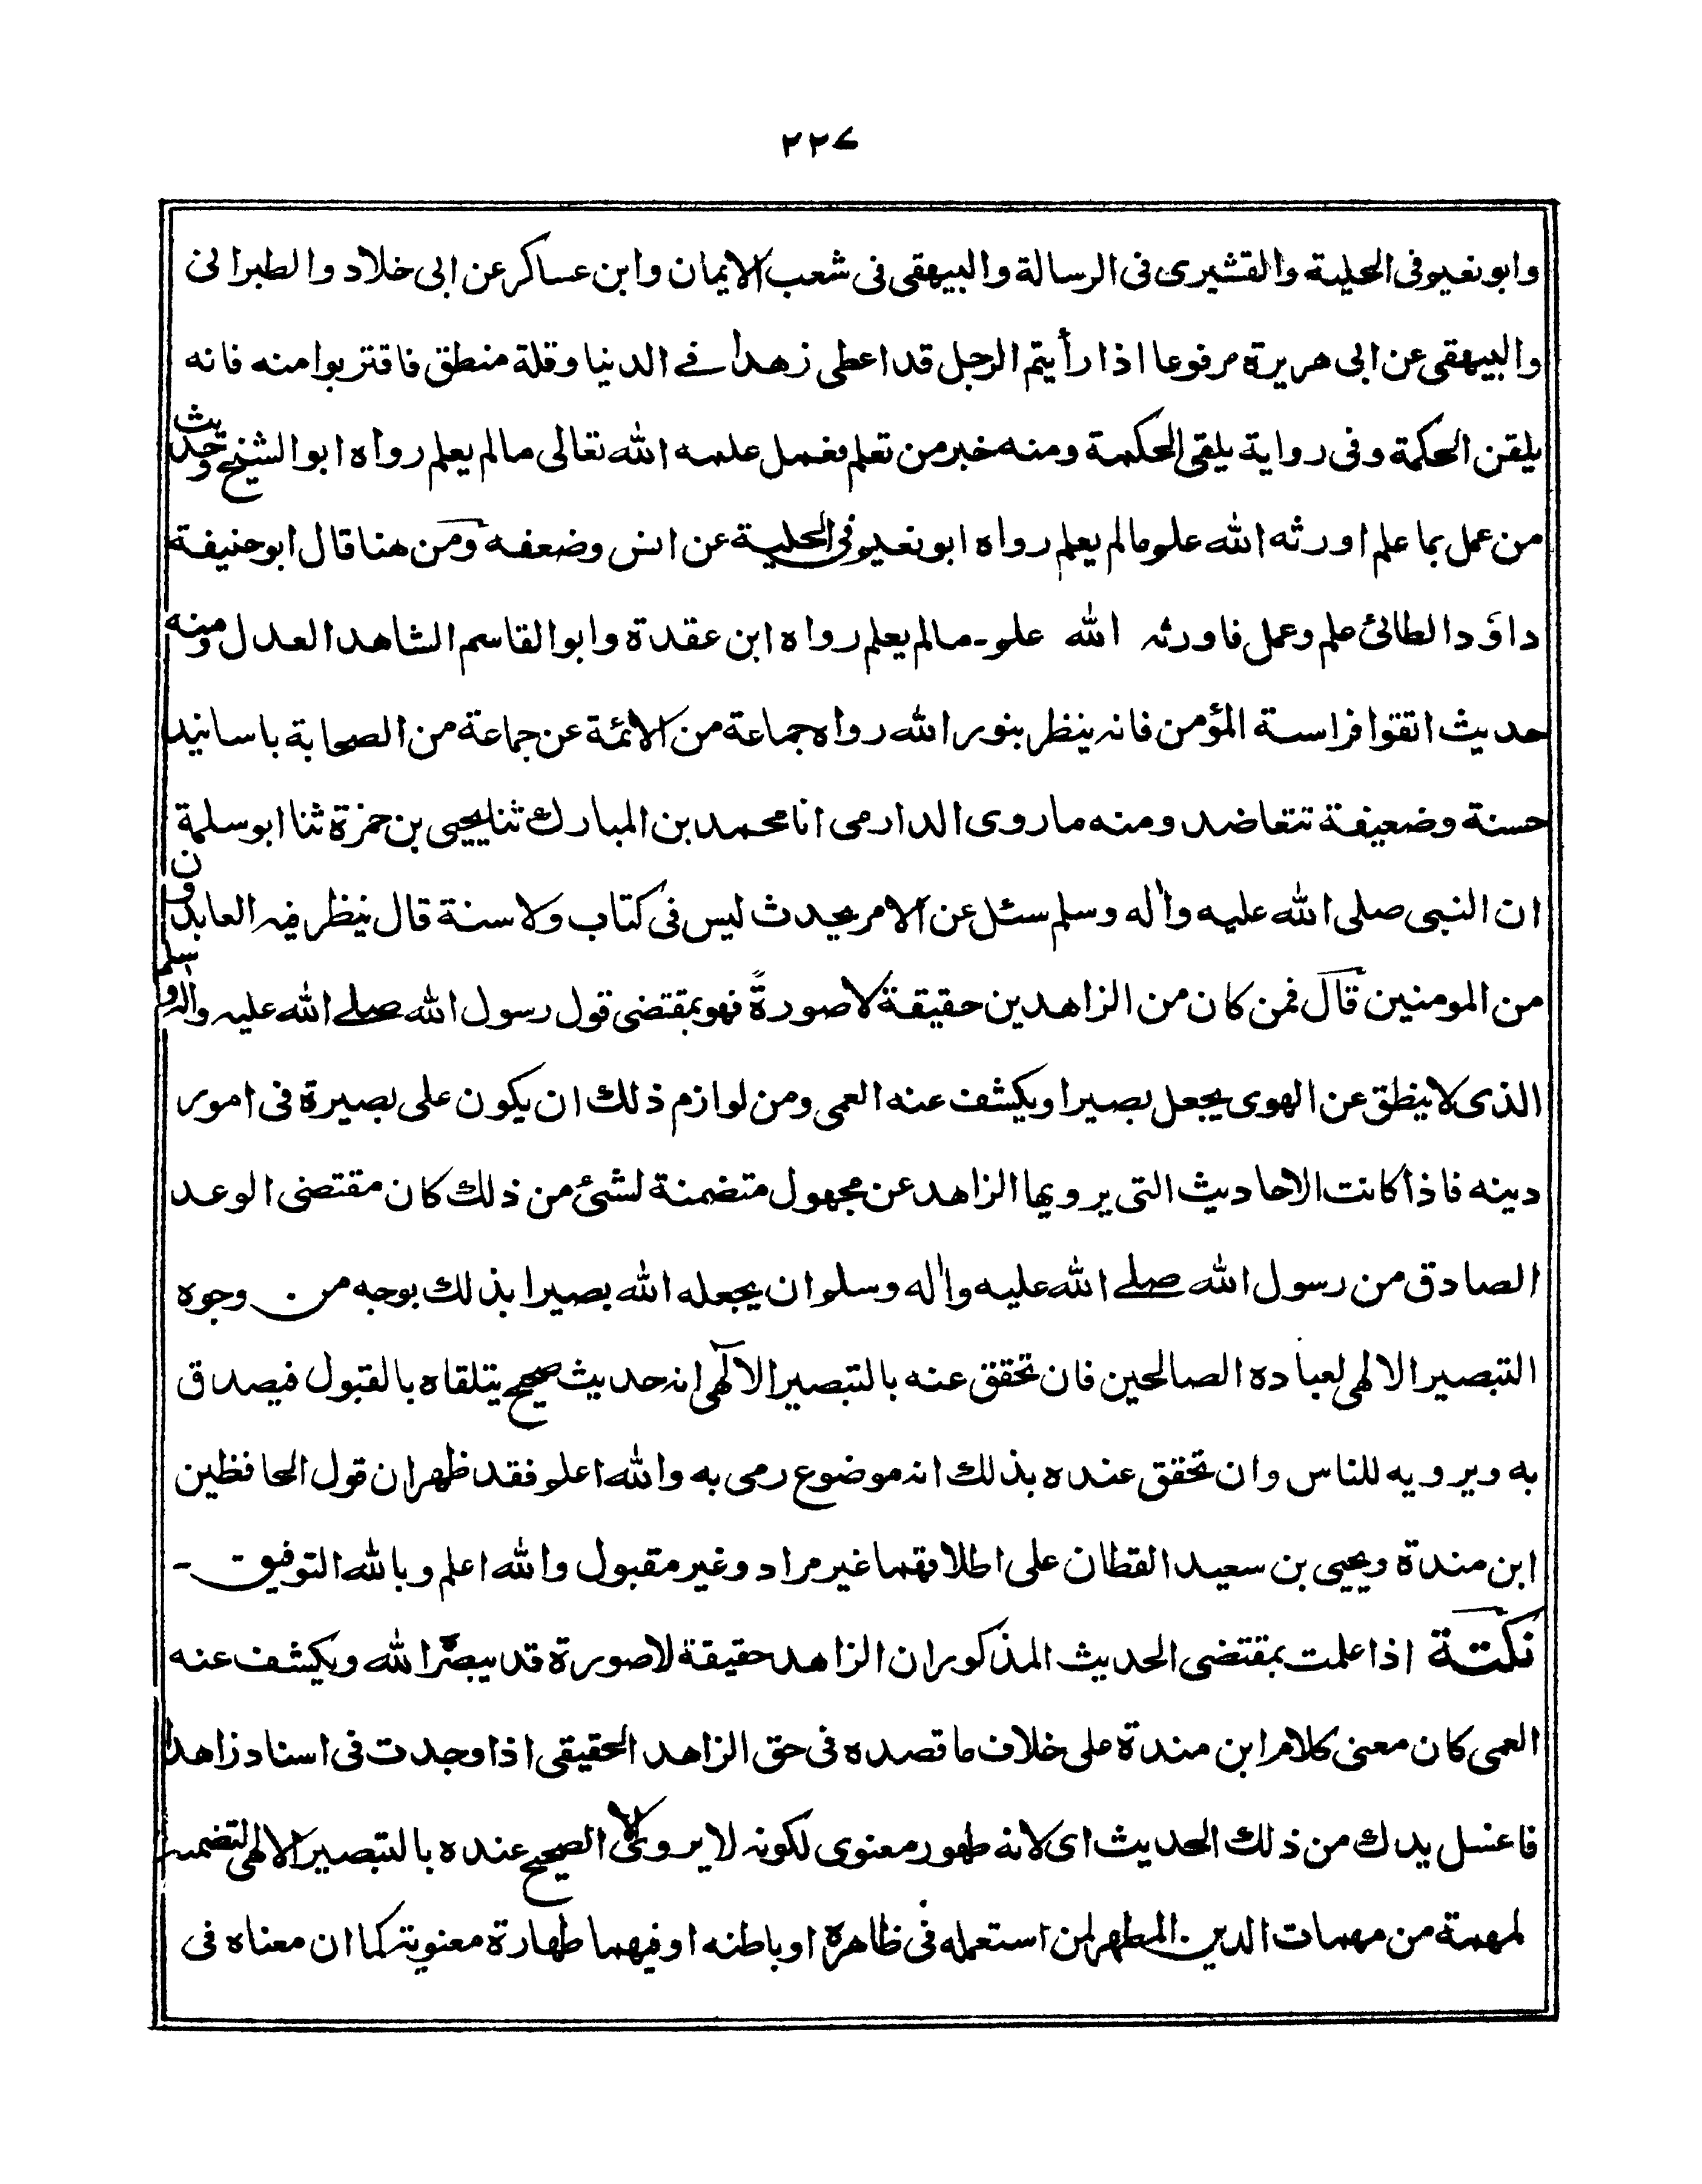 ٢٢٧
وابو نعيم فى الحلية والقشيرى فى الرسالة والبيهقى فى شعب الايمان وابن عساكر عن ابى خلاد والطبرانى
والبيهقى عن ابى هريرة مرفوعا اذا رأيتم الرجل قد اعطى زهدا فے الدنيا وقلة منطق فاقتربوا منه فانه
يلقن الحكمة وفى رواية يلقى الحكمة ومنه خبر من تعلم فعمل علمه الله تعالى مالم يعلم رواه ابو الشيخ وحديث
من عمل بما علم اورثه الله علم مالم يعلم رواه ابو نعيم فى الحلية عن انس وضعفه ومن هنا قال ابو حنيفة
داؤد الطائى علم وعمل فاورثه الله علم مالم يعلم رواه ابن عقدة وابو القاسم الشاهد العدل ومنه
حديث اتقوا فراسة المؤمن فانه ينظر بنور الله رواه جماعة من الائمة عن جماعة من الصحابة باسانيد
حسنة وضعيفة تتعاضد ومنه ماروى الدارمى انا محمد بن المبارك ثنا يحيى بن حمزة ثنا ابو سلمة
ان النبى صلى الله عليه واٰله وسلم سئل عن الامر يحدث ليس فى كتاب ولا سنة قال ينظر فيه العابدون
من المومنين قال فمن كان من الزاهدين حقيقة لا صورةً فهو بمقتضى قول رسول الله صلے الله عليه واٰله وسلم
الذى لا ينطق عن الهوى يجعل بصيرا ويكشف عنه العمى ومن لوازم ذلك ان يكون على بصيرة فى امور
دينه فاذا كانت الاحاديث التى يرويها الزاهد عن مجهول متضمنة لشئ من ذلك كان مقتضى الوعد
الصادق من رسول الله صلے الله عليه واٰله وسلم ان يجعله الله بصيرا بذلك بوجه من وجوه
التبصير الالهى لعباده الصالحين فان تحقق عنه بالتبصير الالٰهى انه حديث صحيح يتلقاه بالقبول فيصدق
به ويرويه للناس وان تحقق عنده بذلك انه موضوع رمى به والله اعلم فقد ظهر ان قول الحافظين
ابن مندة ويحيى بن سعيد القطان على اطلاقهما غير مراد وغير مقبول والله اعلم وبالله التوفيق -
نكتة اذا علمت بمقتضى الحديث المذكور ان الزاهد حقيقة لا صورة قد يبصّره الله ويكشف عنه
العمى كان معنى كلام ابن مندة على خلاف ما قصده فى حق الزاهد الحقيقى اذا وجدت فى اسناد زاهدا
فاغسل يدك من ذلك الحديث اى لانه طهور معنوى لكونه لا يروى الا الصحيح عنده بالتبصير الالهى لتضمنه
لمهمة من مهمات الدين المطهر لمن استعمله فى ظاهره او باطنه او فيهما طهارة معنوية كما ان معناه فى